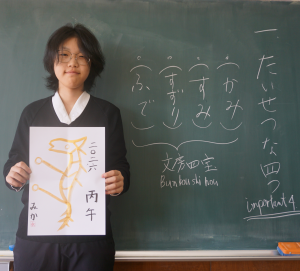 一.たいせつな四つ
important 4
(かみ)
(すみ)
(すずり)
(ふで)
文房四宝
Bunboushihou
二〇二六
丙午
みか